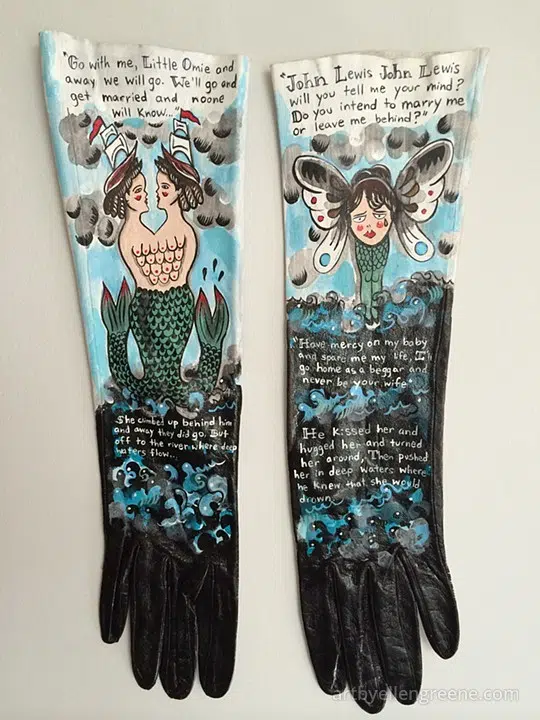 "Go with me, Little Omie and
away we will go. We'll go and
get married and noone
will know..."
She climbed up behind him
and away they did go. But
off to the river where deep
waters flow...
"John Lewis John Lewis
will you tell me your mind?
Do you intend to marry me
or leave me behind?"
"Have mercy on my baby
and spare me my life, I'll
go home as a beggar and
never be your wife"
He kissed her and
hugged her and turned
her around, Then pushed
her in deep waters where
he knew that she would
drown
artbyellengreene.com